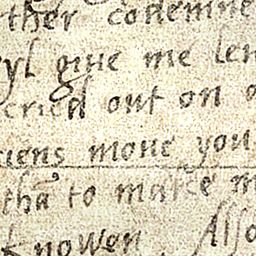 ther codemne
yl giue me len
cried out on
iens moue you
tha to make m
knowen Also